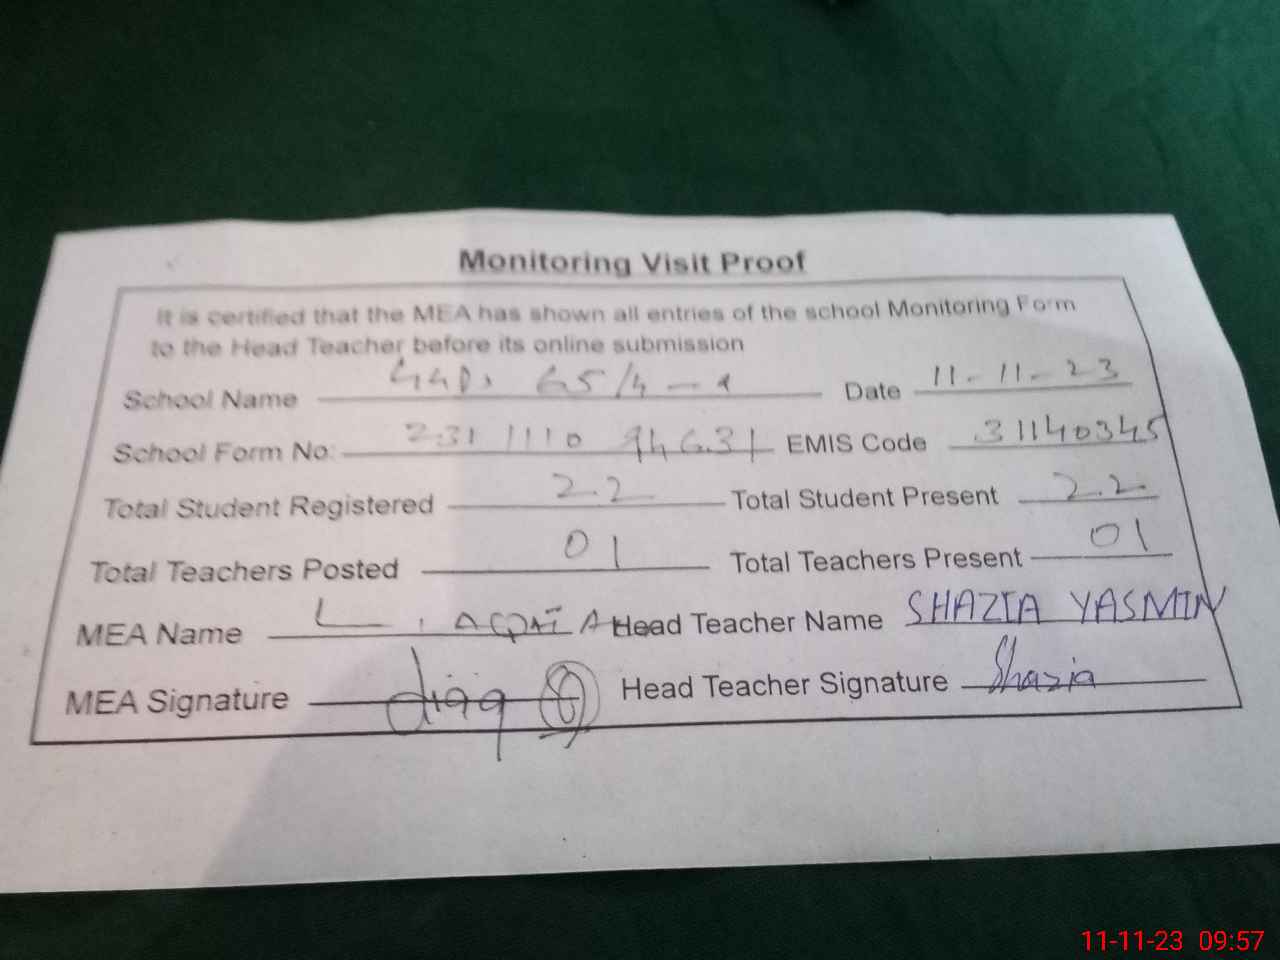 Monitoring Visit Proof
It is certified that the MEA has shown all entries of the school Monitoring Form
to the Head Teacher before its online submission
School Name 65/4 Date 11-11-23
School Form No: EMIS Code 31140345
Total Student Registered 22 Total Student Present 22
Total Teachers Posted 01 Total Teachers Present 01
MEA Name Head Teacher Name SHAZIA YASMIN
MEA Signature Head Teacher Signature Shazia
11-11-23 09:57